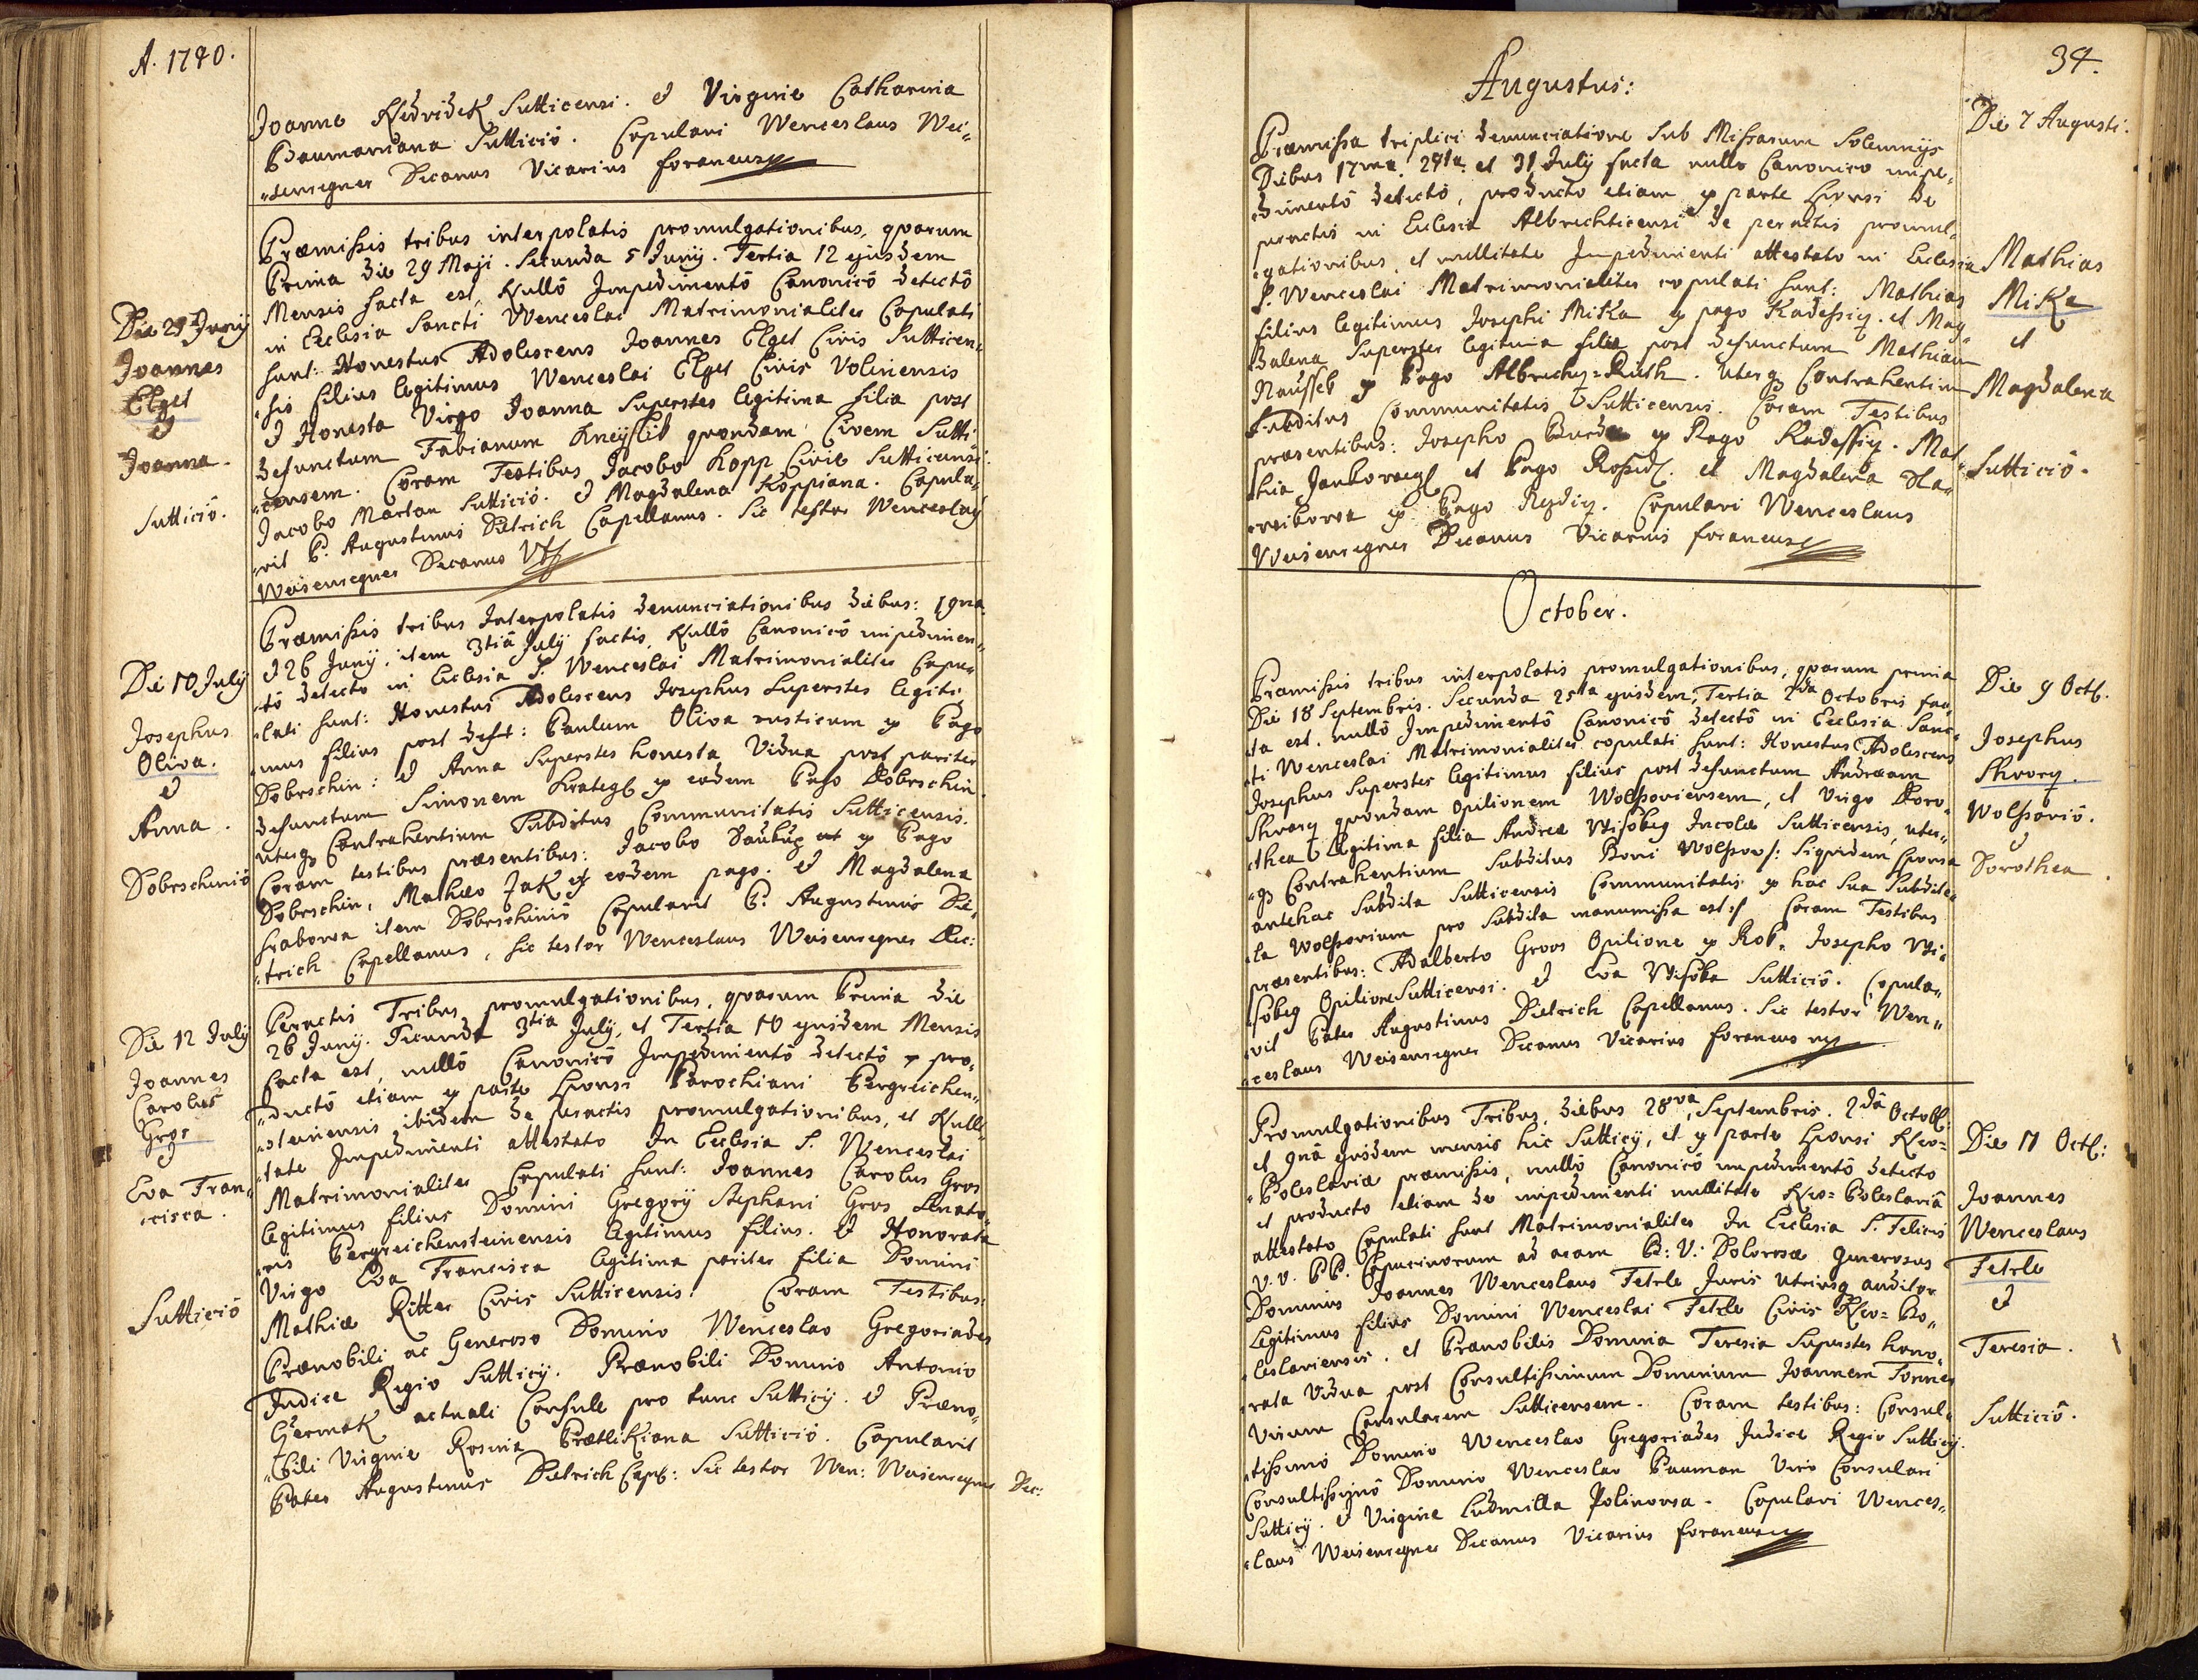 A. 1740.
Joanne Nedvidek Sutticensi. et Virgine Catharina
Baumanniana Suttició. Copulavi Wenceslaus Wei-
"senregner Decanus Vicarius foraneus
Præmissis tribus interpolatis promulgationibus, quarum
Prima die 29 Maji. Secunda 5 Junij. Tertia 12 ejusdem
Mensis facta est, Nullô Impedimentô Canonicô detectô
in Ecclesia Sancti Wenceslai Matrimonialiter Copulati
sunt: Honestus Adolescens Joannes Elget Civis Sutticen-
"sis filius legitimus Wenceslai Elget Civis Volinensis
et Honesta Virgo Joanna Superstes legitima filia post
defunctum Fabianum quondam Civem Sutti-
"censem. Coram Testibus Jacobo Kopp Civie Sutticensi.
Jacobo Martan Suttició. et Magdalena Koppiana. Copula-
"vit P. Augustinus Dietrich Capellanus. Sic testor Wenceslaus
Weisenregner Decanus VF
Die 21 Junij
Joannes
Elget
et
Joanna.
Suttició.
Præmissis tribus Interpolatis denunciationibus diebus: 19na
et 26 Junij, item 3tiâ July factis, Nullô Canonicô impedimen-
"tô detecto in Ecclesia S. Wenceslai Matrimonialiter Copu-
"lati sunt: Honestus Adolescens Josephus Superstes legiti-
"mus filius post deft: Paulum Oliva rusticum ex Pago
Dobrschin: et Anna Superstes honesta Vidua post pariter
defunctum Simonem ex eodem Pago Dobrschin.
uterq Contrahentium Subditus Communitatis Sutticensis.
Coram testibus præsentibus: Jacobo ex Pago
Dobrschin, Mathæo Jak ex eodem pago. et Magdalena
Hrabowa item Dobrschinió Copulavit P. Augustinus Die-
"trich Capellanus, sic testor Wenceslaus Weisenregner Dec:
Die 10 July
Josephus
Oliva.
et
Anna.
Dobrschinió
Peractis Tribus promulgationibus, quarum Prima die
26 Junij. Secunda 3tia July, et Tertia 10 ejusdem Mensis
facta est, nullô Canonicô Impedimentô detectô & pro-
"ductô etiam ex parte Sponsi Parochiani Bergreichen-
"steinensis ibidem de peractis promulgationibus, et Nulli-
"tate Impedimenti attestato In Ecclesia S. Wenceslai
Matrimonialiter Copulati sunt: Joannes Carolus Gros
legitimus filius Domini Gregorij Stephani Gros Senato-
"ris Bergreichensteinensis legitimus filius. et Honorata
Virgo Eva Francisca legitima pariter filia Domini
Mathiæ Ritter Civis Sutticensis. Coram Testibus:
Prænobili ac Generoso Domino Wenceslao Gregoriades
Judice Regio Sutticij. Prænobili Domino Antonio
Czermak actuali Consule pro tunc Sutticij. et Præno-
"bili Virgine Rosina Suttició. Copulavit
Pater Augustinus Dietrich Capel: Sic testor Wen: Weisenregner Dec:
Die 12 July
Joannes
Carolus
Gros
et
Eva Fran-
"cisca.
Suttició
34.
Augustus:
Præmissa triplici denunciatione Sub Missarum Solemnijs
Diebus 17ma. 24ta et 31 July facta nullo Canonico impe-
"dimentô detectô, productô etiam ex parte Sponsi de
peractis in Ecclesia Albrechticensi de peractis promul-
"gationibus, et nullitate Impedimenti attestato in Ecclesia
S. Wenceslai Matrimonialiter copulati sunt: Mathias
filius legitimus Josephi Mika ex pago et Mag-
"dalena Superstes legitima filia post defunctum Mathiam
ex Pago Uterq Contrahentium
Subditus Communitatis Sutticensis. Coram Testibus
præsentibus: Josepho ex Pago Mat-
"thia et Pago et Magdalena
ex Pago Copulavi Wenceslaus
Weisenregner Decanus Vicarius foraneus
Die 7 Augusti.
Mathias
Mika
et
Magdalena
Suttició.
October.
Præmissis tribus interpolatis promulgationibus, quarum prima
Die 18 Septembris. Secunda 25ta ejusdem, Tertia 2da Octobris fac-
"ta est. nullô Impedimentô Canonicô detectô in Ecclesia Sanc-
"ti Wenceslai Matrimonialiter copulati sunt: Honestus Adolescens
Josephus Superstes legitimus filius post defunctum Andream
Skwory quondam Opilionem Wolssoviensem, et Virgo Doro-
"thea legitima filia Andreæ Incolæ Sutticensis, uter-
"q Contrahentium Subditus Boni Siquidem Sponsa
antehac Subdita Sutticensis Communitatis ex hac Sua Subdite-
"la Wolssovium pro Subdita manumissa est Coram Testibus
præsentibus: Adalberto Groos Opilione ex Rok. Josepho
Opilione Sutticensi. et Eva Suttició. Copula-
"vit Pater Augustinus Dietrich Capellanus. Sic testor Wen-
"ceslaus Weisenregner Decanus Vicarius foraneus mp
Die 9 Octb.
Josephus
Skvory.
Wolssovió.
et
Dorothea.
Promulgationibus Tribus, diebus 28va Septembris. 2da Octob:
et 9nâ ejusdem mensis hic Sutticij, et ex parte Sponsi Neo-
"Boleslaviæ præmissis, nullô Canonicô impedimentô detecto
et producto etiam de impedimenti nullitate Neo-Boleslaviâ
attestato Copulati sunt Matrimonialiter In Ecclesia S. Felicis
V. V. PP. Capucinorum ad aram B: V: Dolorosæ Generosus
Dominus Joannes Wenceslaus Tetrle Juris utriusq auditor
Legitimus filius Domini Wenceslai Tetrle Civis Neo-Bo-
"leslaviensis. et Prænobilis Domina Teresia Superstes hono-
"rata Vidua post Consultissimum Dominum Joannem Tonner
Virum Consularem Sutticensem. Coram testibus: Consul-
"tissimo Domino Wenceslao Gregoriades Judice Regio Sutticij.
Consultissimô Domino Wenceslao Bauman Viro Consulari
Sutticij. et Virgine Ludmilla Polinovsa. Copulavi Wences-
"laus Weisenregner Decanus Vicarius foraneus
Die 11 Octb:
Joannes
Wenceslaus
Tetrle
et
Teresia.
Suttició.